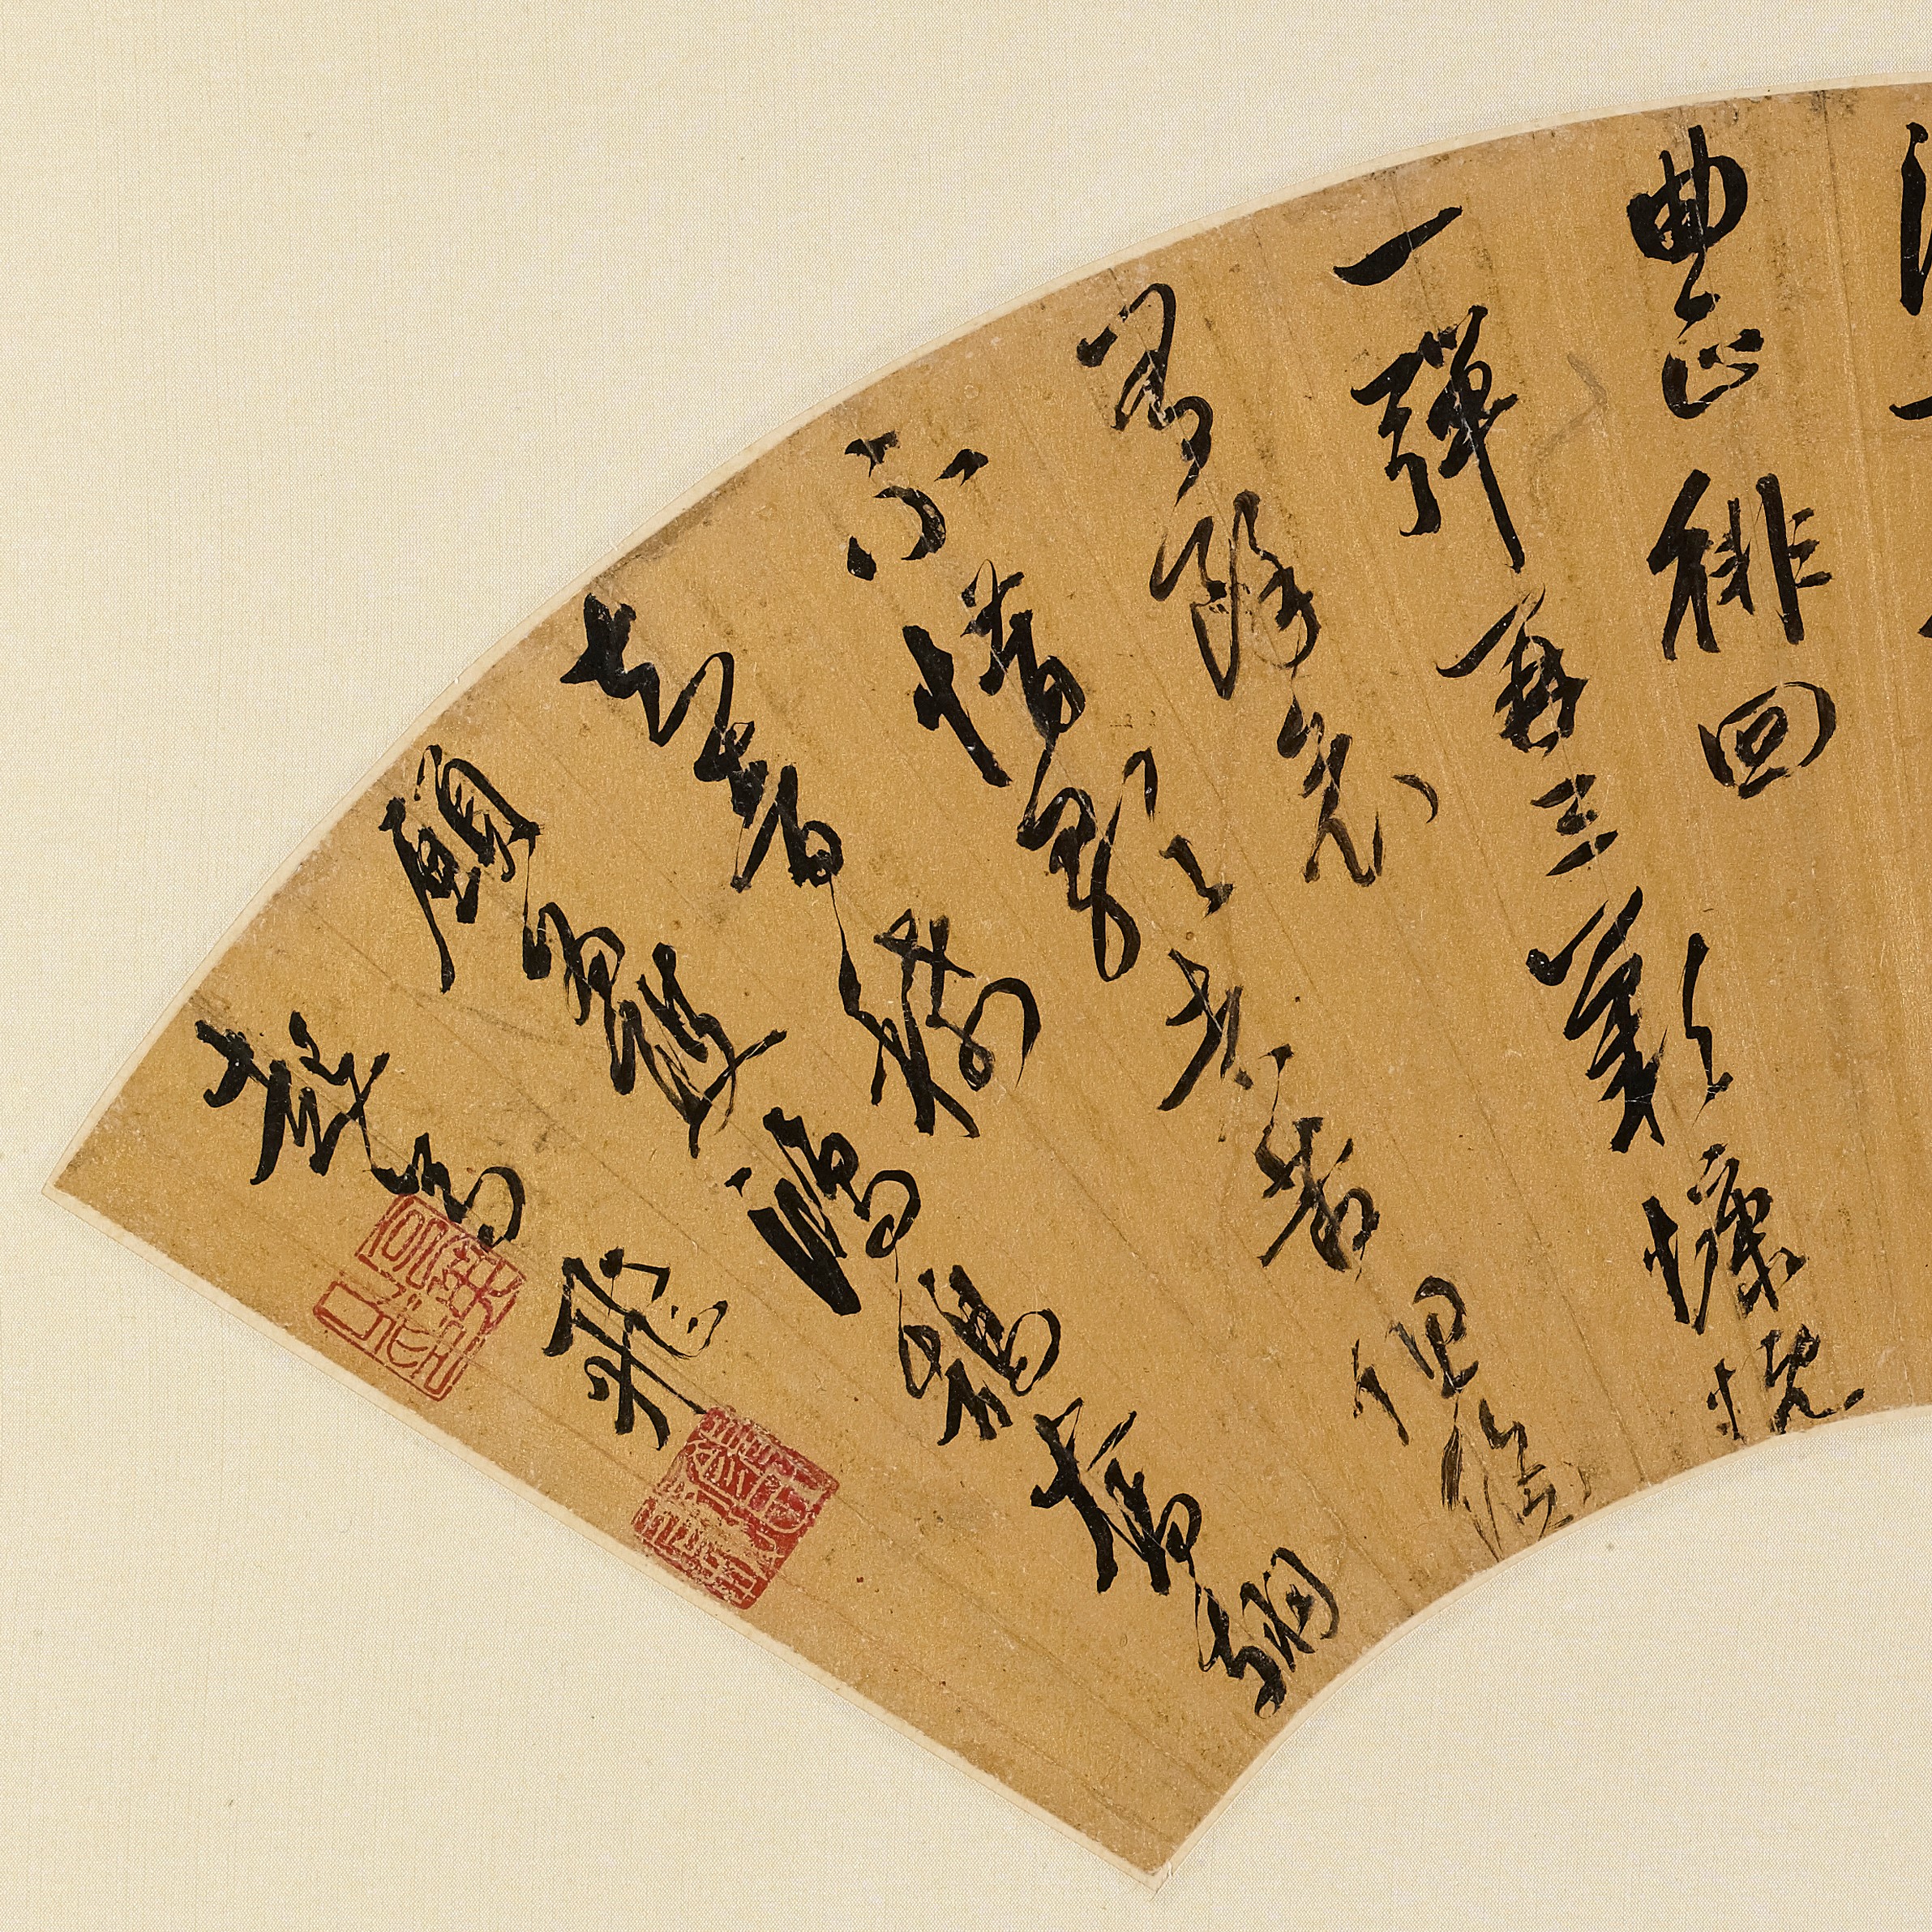 曲正徘徊
一彈再三歎慷慨
有餘哀
不惜歌者苦但傷
知音稀
願為雙鴻鵠奮翅
起高飛